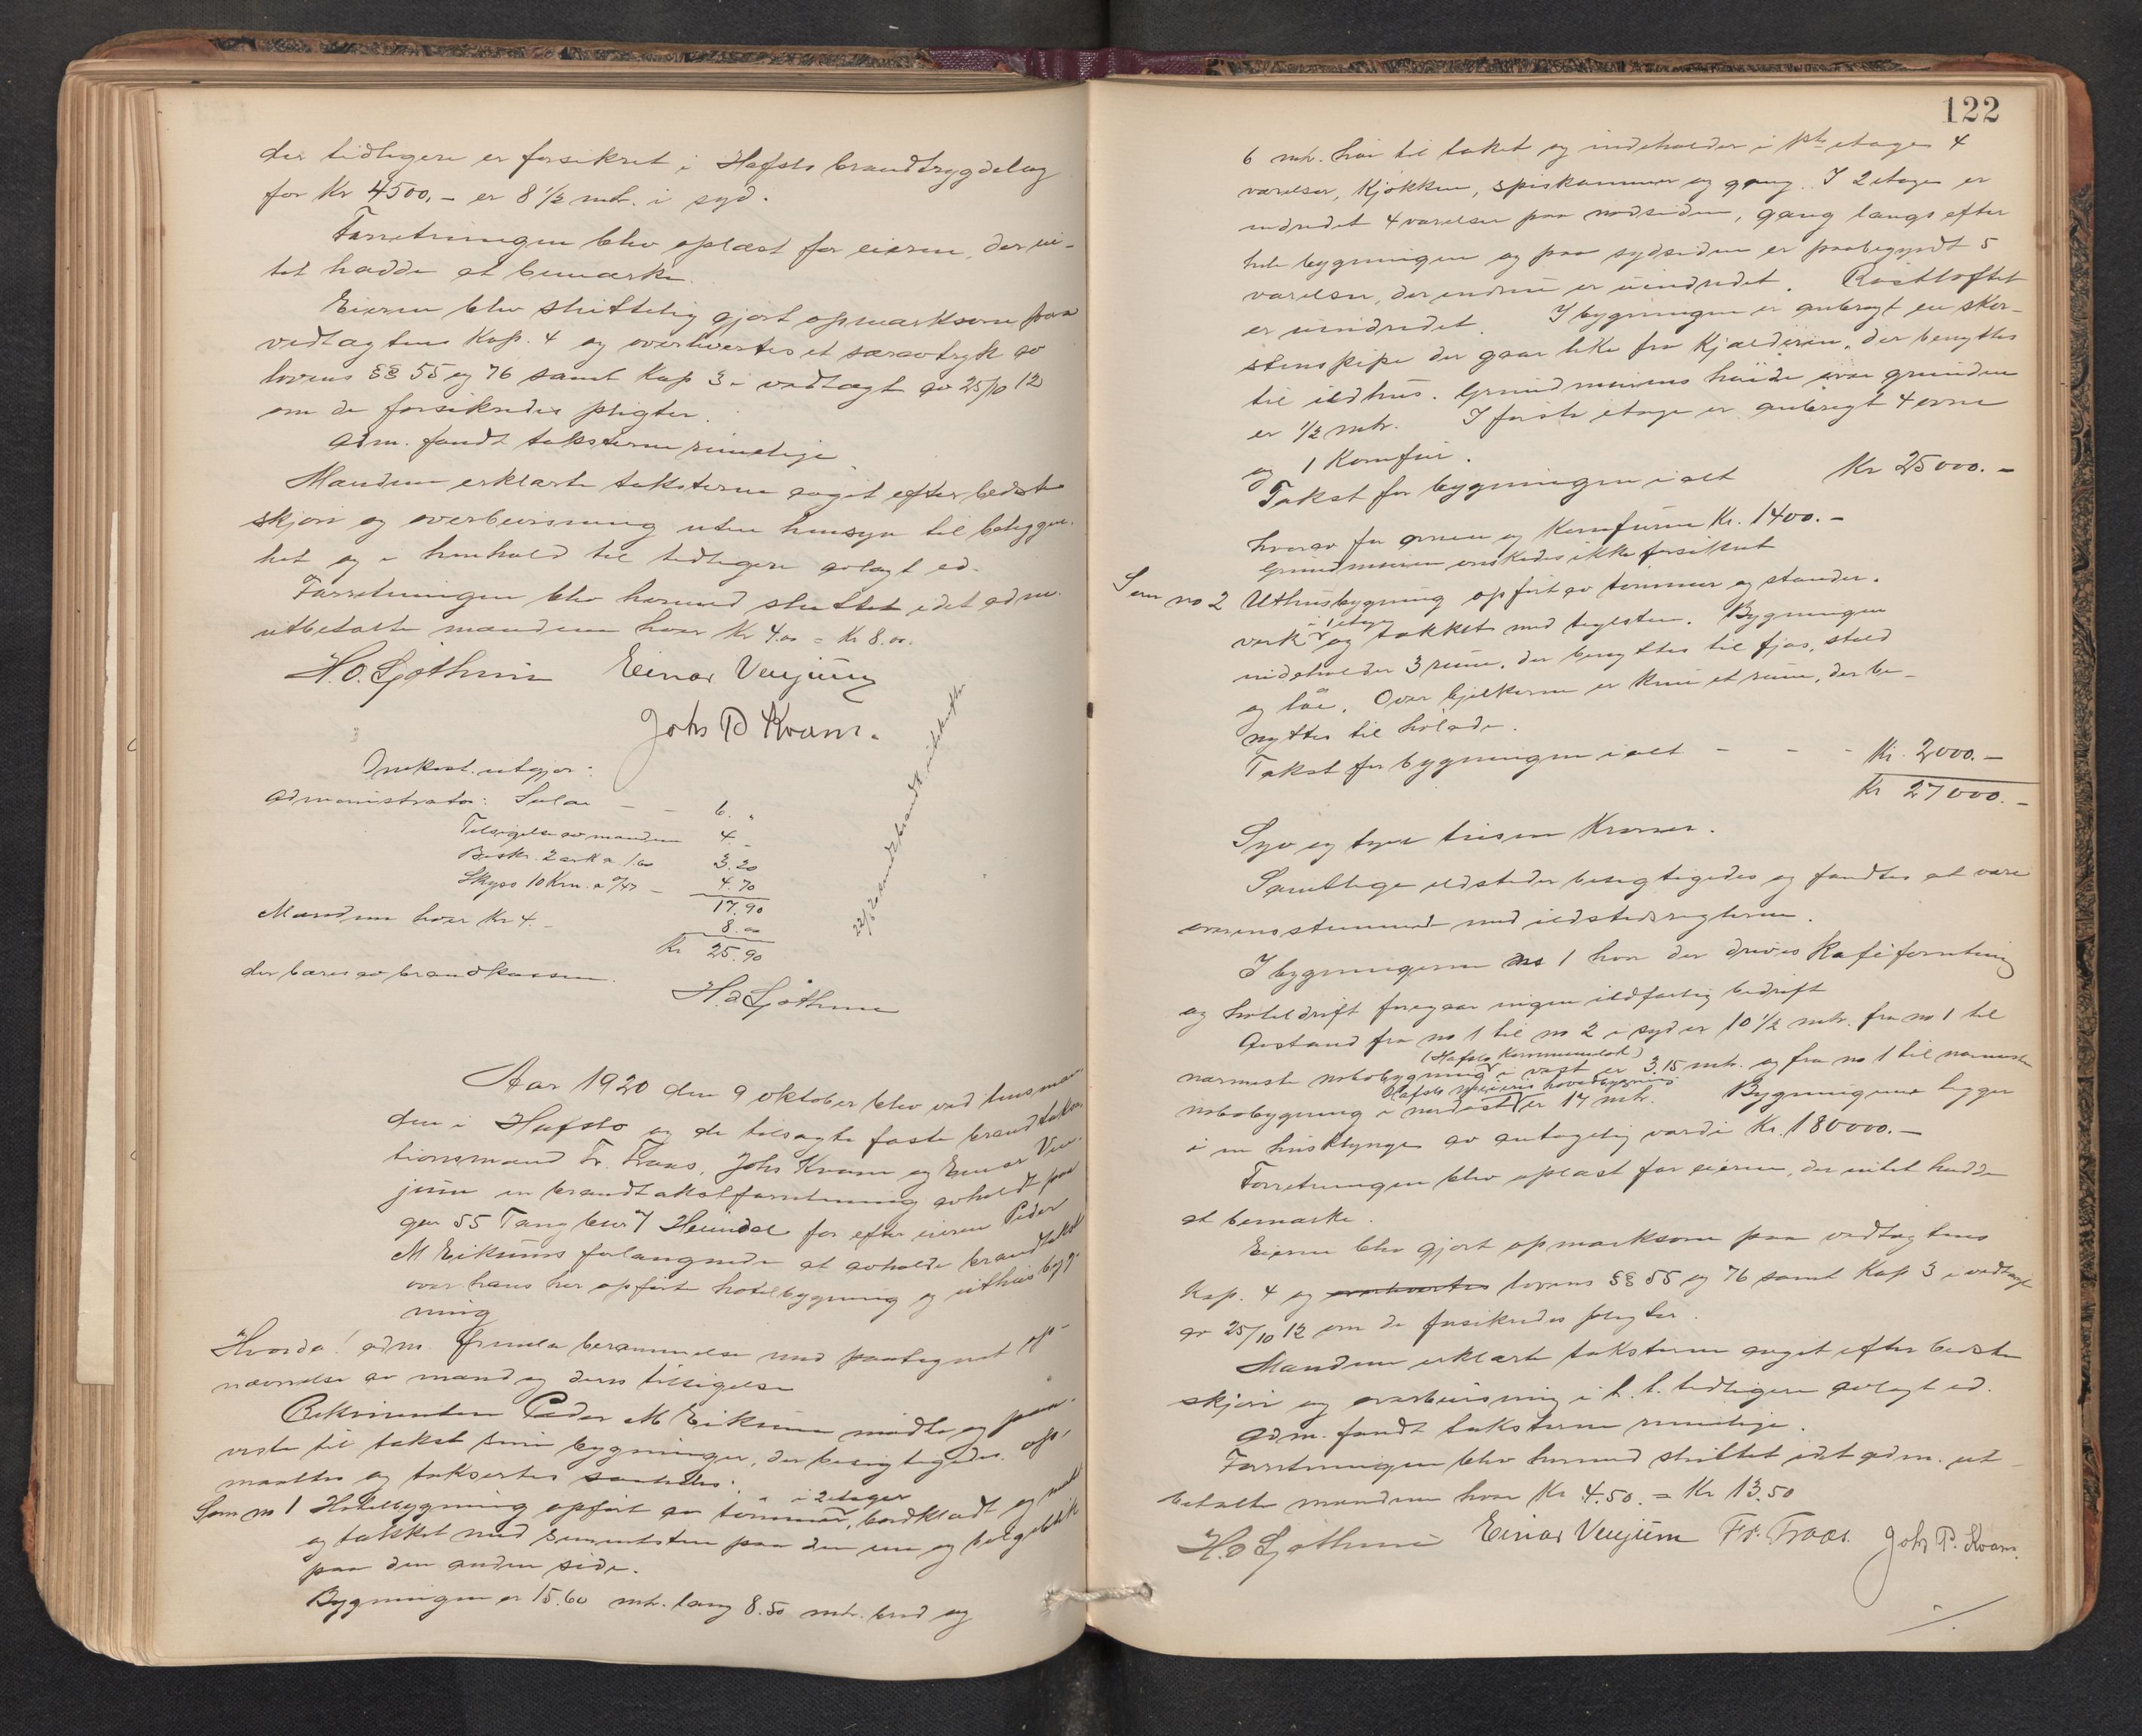 der tidligere er forsikret i Hafslo brandtrygdelag
for Kr 4500,- er 8 1/2 mtr. i syd.
Forretningen blev oplæst for eieren, der in-
tet hadde at bemærke.
Eieren blev skriftelig gjort opmerksom paa
vedtægtens Kap. 4 og overlevertes et særavtryk av
lovens §§ 55 og 76 samt Kap 3 i vedtægt av 25/10 12
om de forsikredes pligter.
Adm. fandt taksterne rimelige
Mændene erklærte taksterne avgit efter bedste
skjøn og overbevisning uten hensyn til beliggen-
het og i henhold til tidligere avlagt ed.
Forretningen blev hermed sluttet idet adm.
utbetalte mændene hver Kr 4.00 = Kr 8.00.
H.O. Gjøthun Einar Venjum
Johs P Kvam.
Omkost. utgjør:
Administrator: Salær - - 6. "
Tilsigelse av mændene 4. -
Beskr. 2 ark a 1.60 3.20
Skyss 10 Km. a 0/47 - 4.70
17.90
Mændene hver Kr 4. - 8.00
Kr 25.90
der bæres av brandkassen.
H.O. Gjøthun
Aar 1920 den 9 oktober blev ved lensman-
den i Hafslo og de tilsagte faste brandtaksa-
tionsmænd Fr. Traas, Johs Kvam og Einar Ven-
jum en brandtakstforretning avholdt paa
gnr 55 Tang bnr 7 Heimdal for efter eieren Peder
M Eikums forlangende at avholde brandtakst
over hans her opførte hotelbygning og uthusbyg-
ning
Hvorda! adm. fremla berammelse med paategnet op-
nævnelse av mænd og deres tilsigelse
Rekvirenten Peder M Eikum møtte og paa-
viste til takst sine bygninger, der besigtigedes, op-
maaltes og taksertes saaledes:
i 2 etager
Som no 1 Hotelbygning opført av tømmer, bordklædt og malt
og tækket med sementsten paa den ene og bølgeblik
paa den anden side.
Bygningen er 15.60 mtr. lang 8.50 mtr. bred og
122
6 mtr. høi til taket og indeholder i 1ste etage 4
værelser, kjøkken, spiskammer og gang. I 2 etage er
indredet 4 værelser paa nordsiden, gang langs efter
hele bygningen og paa sydsiden er paabegyndt 5
værelser, der endnu er uindredet. Røstloftet
er uindredet. I bygningen er anbragt en skor-
stenspipe der gaar like fra Kjælderen, der benyttes
til ildhus. Grundmurens høide over grunden
er 1/2 mtr. I første etage er anbragt 4 ovne
og 1 Komfur.
Takst for bygningen i alt Kr 25000.-
hvorav for ovnene og Komfuren Kr. 1400.-
Grundmuren ønskedes ikke forsikret
Som no 2 Uthusbygning opført av tømmer og stander-
i 1 etage
verk og tækket med taglsten. Bygningen
indeholder 3 rum, der benyttes til fjøs, stald
og låe. Over bjelkerne er kun et rum, der be-
nyttes til hølade.
Takst for bygningen i alt - - - Kr. 2000.-
Kr 27000.-
Syv og tyve tusen Kroner.
Samtlige ildsteder besigtigedes og fandtes at være
overensstemmende med ildstedsreglerne.
I bygningerne no 1 hvor der drives Kaféforretning
og hoteldrift foregaar ingen ildfarlig bedrift
Avstand fra no 1 til no 2 i syd er 10 1/2 mtr. fra no 1 til
(Hafslo Kommunelok)
nærmeste nabobygning i vest er 3,15 mtr. og fra no 1 til nærmeste
Hafslo Meieris hovedbygning
nabobygning i nordøst er 17 mtr. Bygningerne ligger
i en husklynge av antagelig værdi Kr. 180000.-
Forretningen blev oplæst for eieren, der intet hadde
at bemærke.
Eieren blev gjort opmerksom paa vedtægtens
Kap. 4 og overleveertes lovens §§ 55 og 76 samt Kap 3 i vedtægt
av 25/10 12 om de forsikredes pligter.
Mændene erklærte taksterne avgit efter bedste
skjøn og overbevisning i h. t. tidligere avlagt ed.
Adm. fandt taksterne rimelige.
Forretningen blev hermed sluttet idet adm. ut-
betalte mændene hver Kr 4.50. = Kr 13.50
H.O Gjøthun Einar Venjum Fr. Traas. Johs P. Kvam.